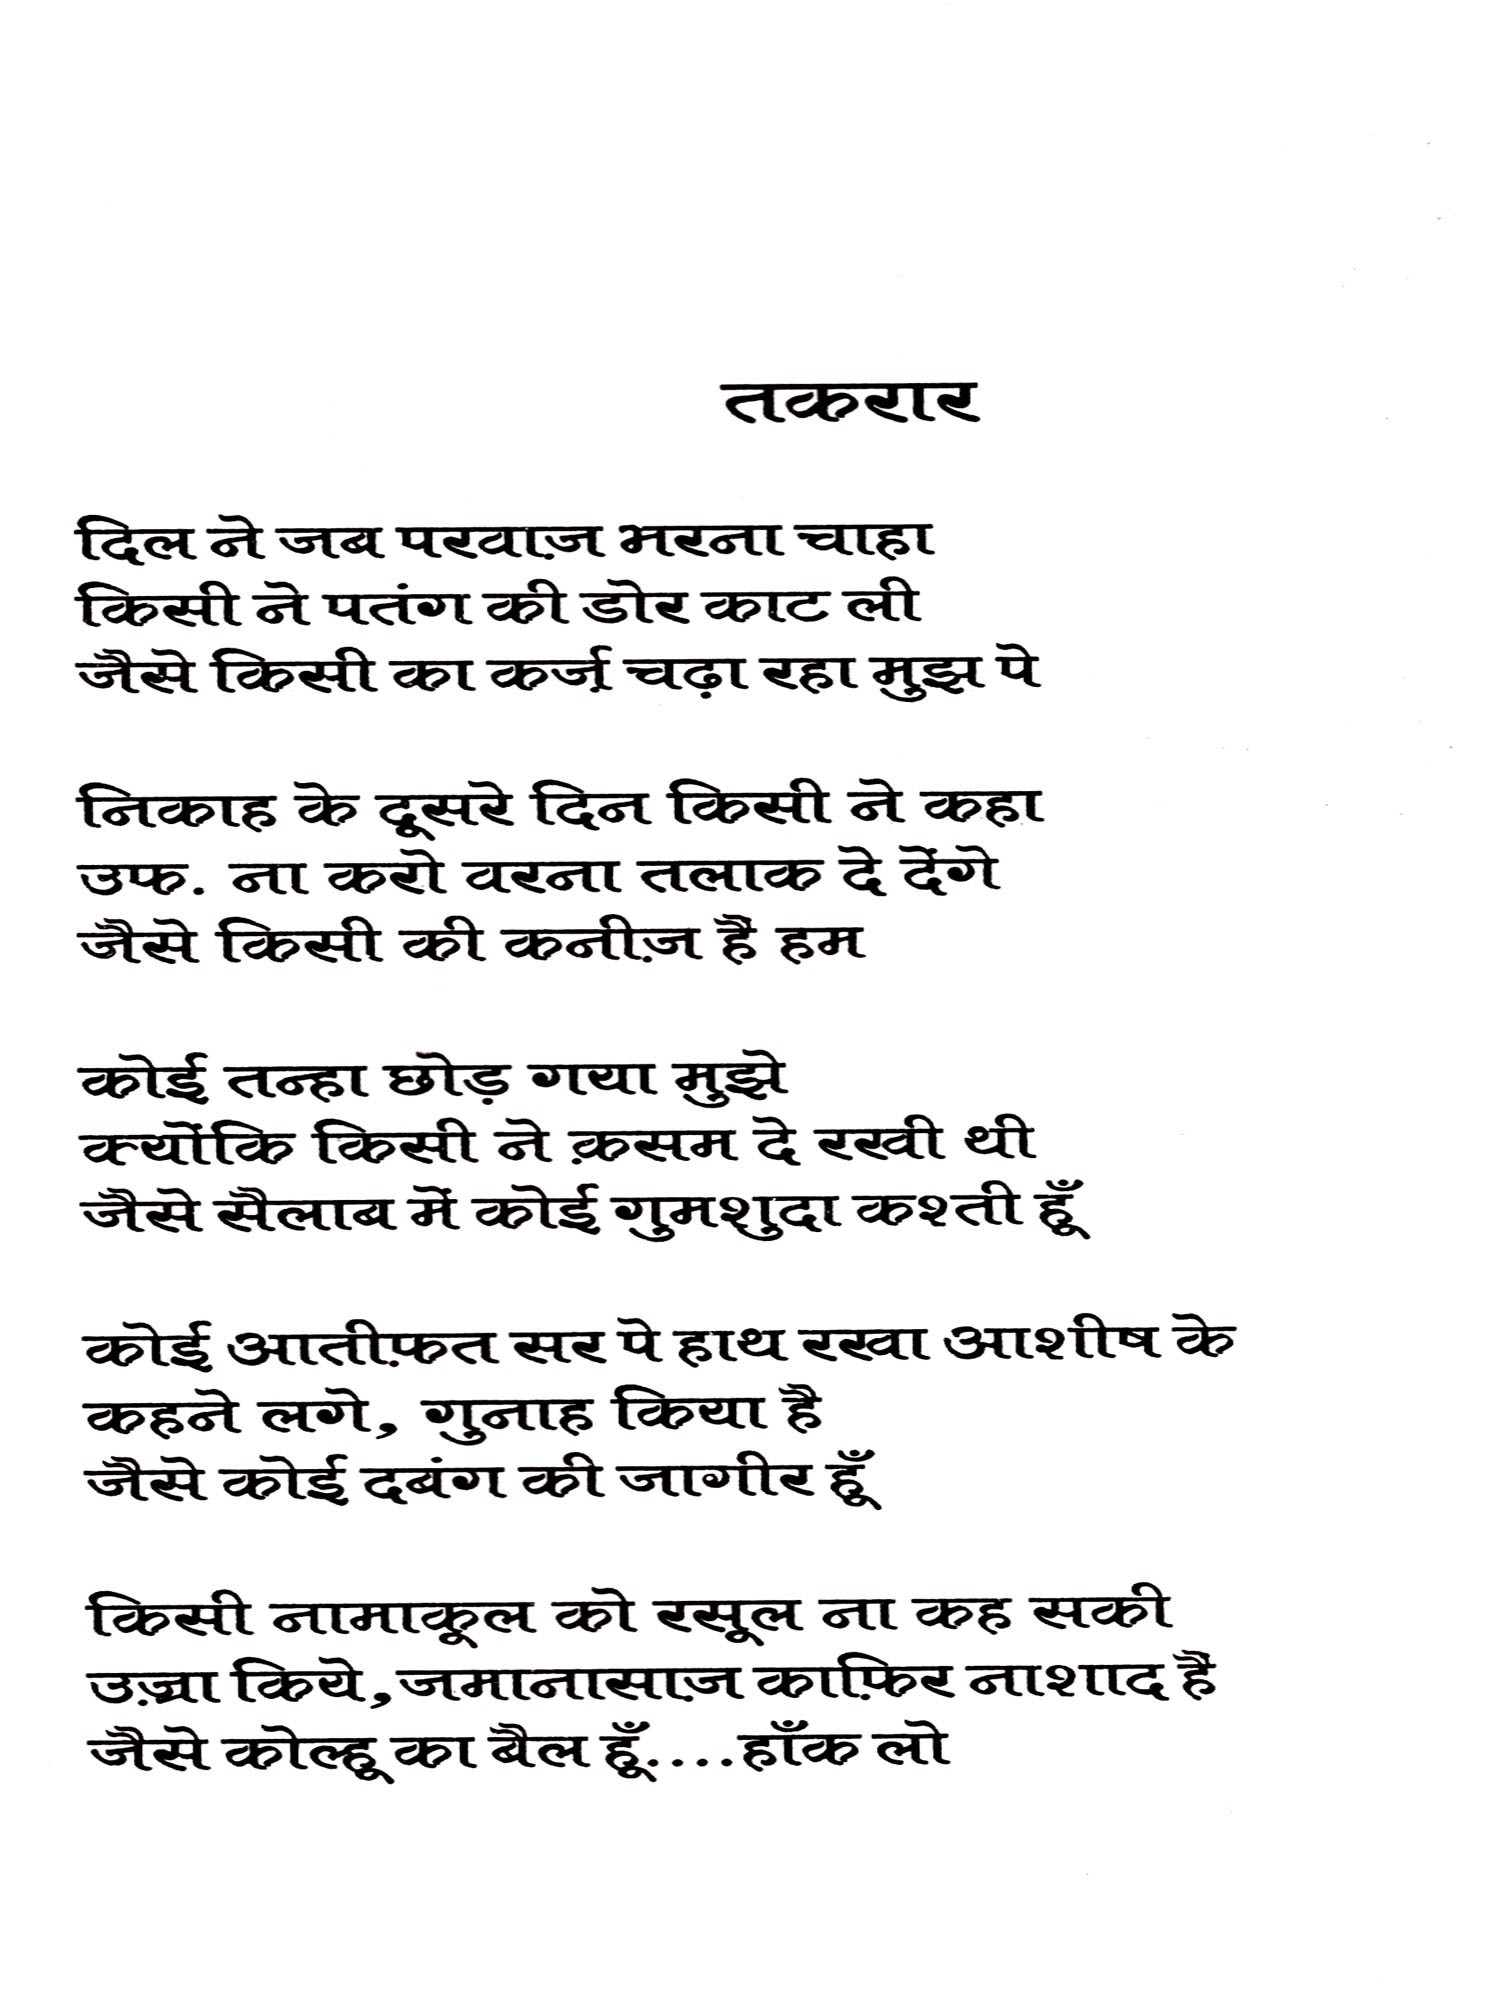 तकरार
दिल ने जब परवाज़ भरना चाहा
किसी ने पतंग की डोर काट ली
जैसे किसी का कर्ज़ चढ़ा रहा मुझ पे
निकाह के दूसरे दिन किसी ने कहा
उफ. ना करो वरना तलाक दे देंगे
जैसे किसी की कनीज़ हैं हम
कोई तन्हा छोड़ गया मुझे
क्योंकि किसी ने क़सम दे रखी थी
जैसे सैलाब में कोई गुमशुदा कश्ती हूँ
कोई आतीफ़त सर पे हाथ रखा आशीष के
कहने लगे, गुनाह किया है
जैसे कोई दबंग की जागीर हूँ
किसी नामाकूल को रसूल ना कह सकी
उज़्रा किये,जमानासाज़ काफ़िर नाशाद हैं
जैसे कोल्हू का बैल हूँ....हाँक लो